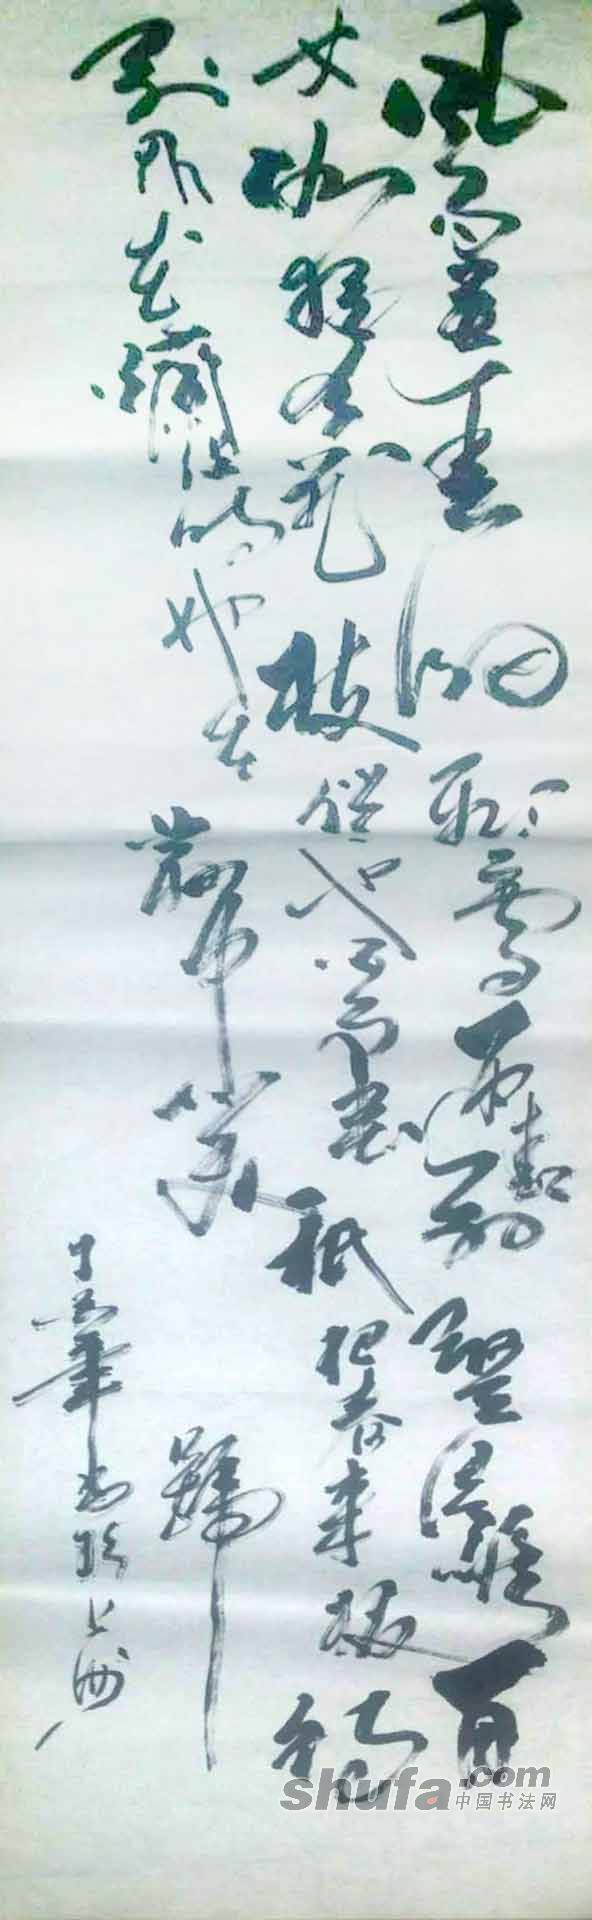 风雨送春归飞雪迎春到已是悬崖百
丈冰犹有花枝俏俏也不争春祇把春来报待
到山花烂漫时她在丛中笑
年书于上
shufa.com
中国书法网